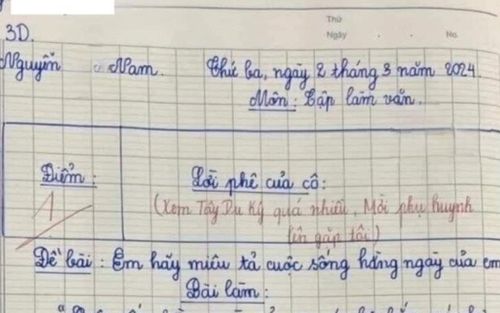 Thứ
3D.
Ngày No.
Nguyễn Nam. Thứ ba, ngày 2 tháng 3 năm 2024.
Môn: Tập làm văn.
Điểm: Lời phê của cô:
1 (Xem Tây Du Ký quá nhiều, Mời phụ huynh
lên gặp tôi)
Đề bài: Em hãy miêu tả cuộc sống hằng ngày của em
Bài làm: